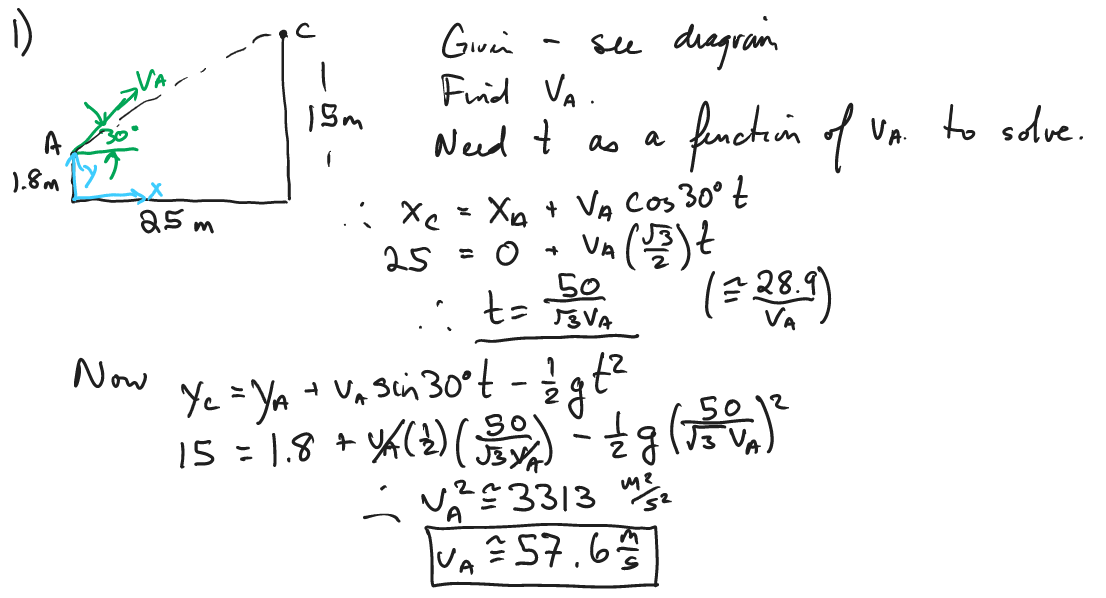 1)
C
V_A
30°
A
y
x
1.8m
15m
25 m
Given - see diagram
Find V_A.
Need t as a function of V_A. to solve.
∴ x_C = x_A + V_A cos30° t
25 = 0 + V_A (√3/2) t
∴ t = 50/(√3 V_A) (≅ 28.9/V_A)
Now y_C = y_A + V_A sin30° t - 1/2 g t²
15 = 1.8 + V_A (1/2) (50/(√3 V_A)) - 1/2 g (50/(√3 V_A))²
∴ V_A² ≅ 3313 m²/s²
V_A ≅ 57.6 m/s